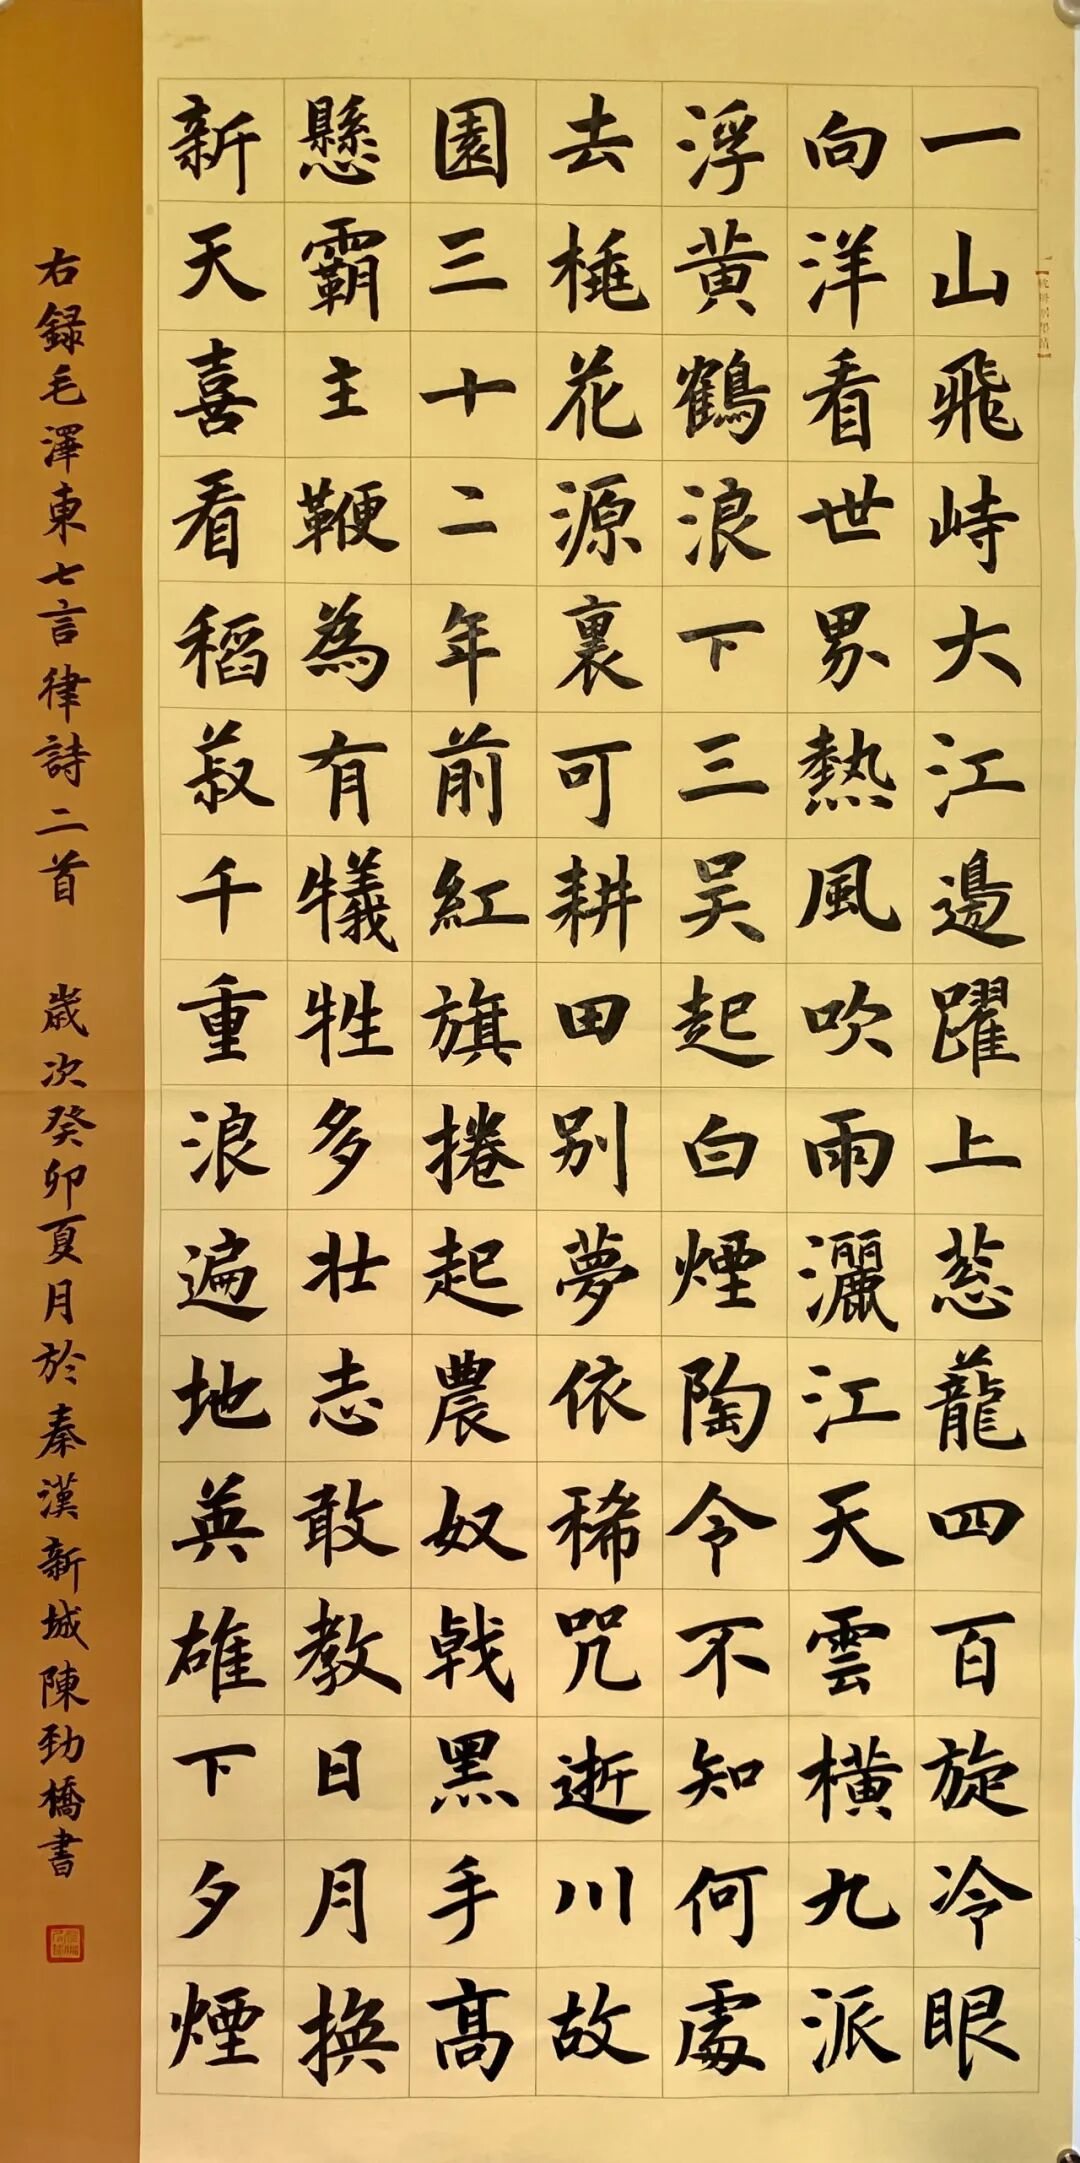 一山飛峙大江邊躍上葱蘢四百旋冷眼
向洋看世界熱風吹雨灑江天雲橫九派
浮黃鶴浪下三吳起白煙陶令不知何處
去桃花源裏可耕田別夢依稀咒逝川故
園三十二年前紅旗捲起農奴戟黑手高
懸霸主鞭為有犧牲多壯志敢教日月換
新天喜看稻菽千重浪遍地英雄下夕煙
右録毛澤東七言律詩二首 歲次癸卯夏月於秦漢新城陳勁橋書